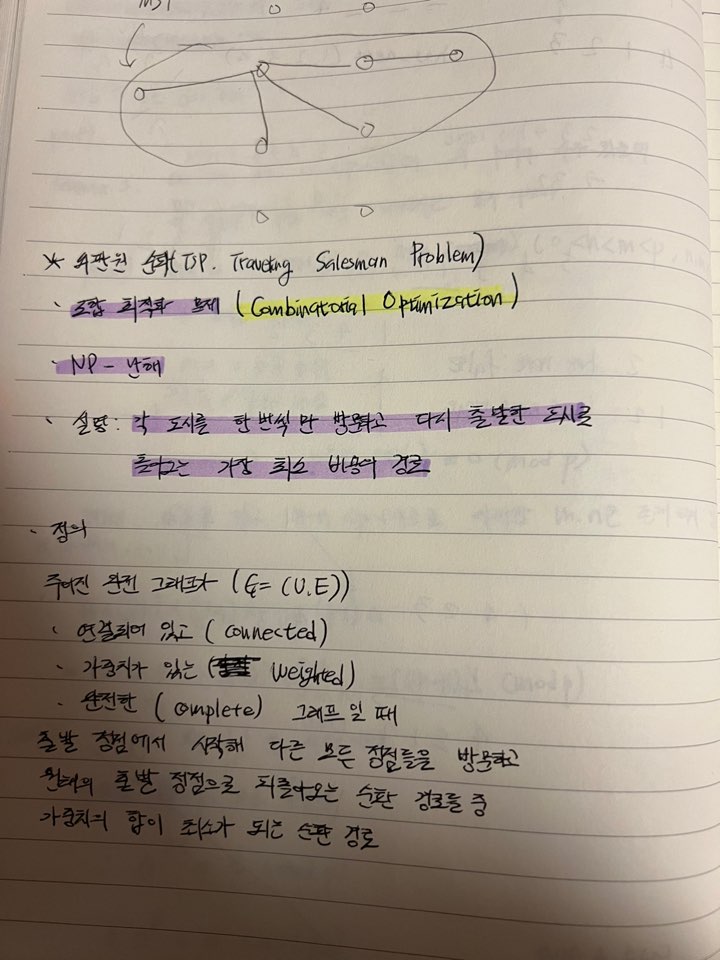 MST
* 외판원 순회(TSP. Traveling Salesman Problem)
· 조합 최적화 문제 (Combinatorial Optimization)
· NP - 난해
· 설명: 각 도시를 한번씩만 방문하고 다시 출발한 도시로
돌아오는 가장 최소 비용의 경로
· 정의
주어진 완전 그래프가 (G = (V.E))
· 연결되어 있고 (connected)
· 가중치가 있는 (Weighted)
· 완전한 (complete) 그래프일 때
출발 정점에서 시작해 다른 모든 정점들을 방문하고
원래의 출발 정점으로 되돌아오는 순환 경로들 중
가중치의 합이 최소가 되는 순환 경로